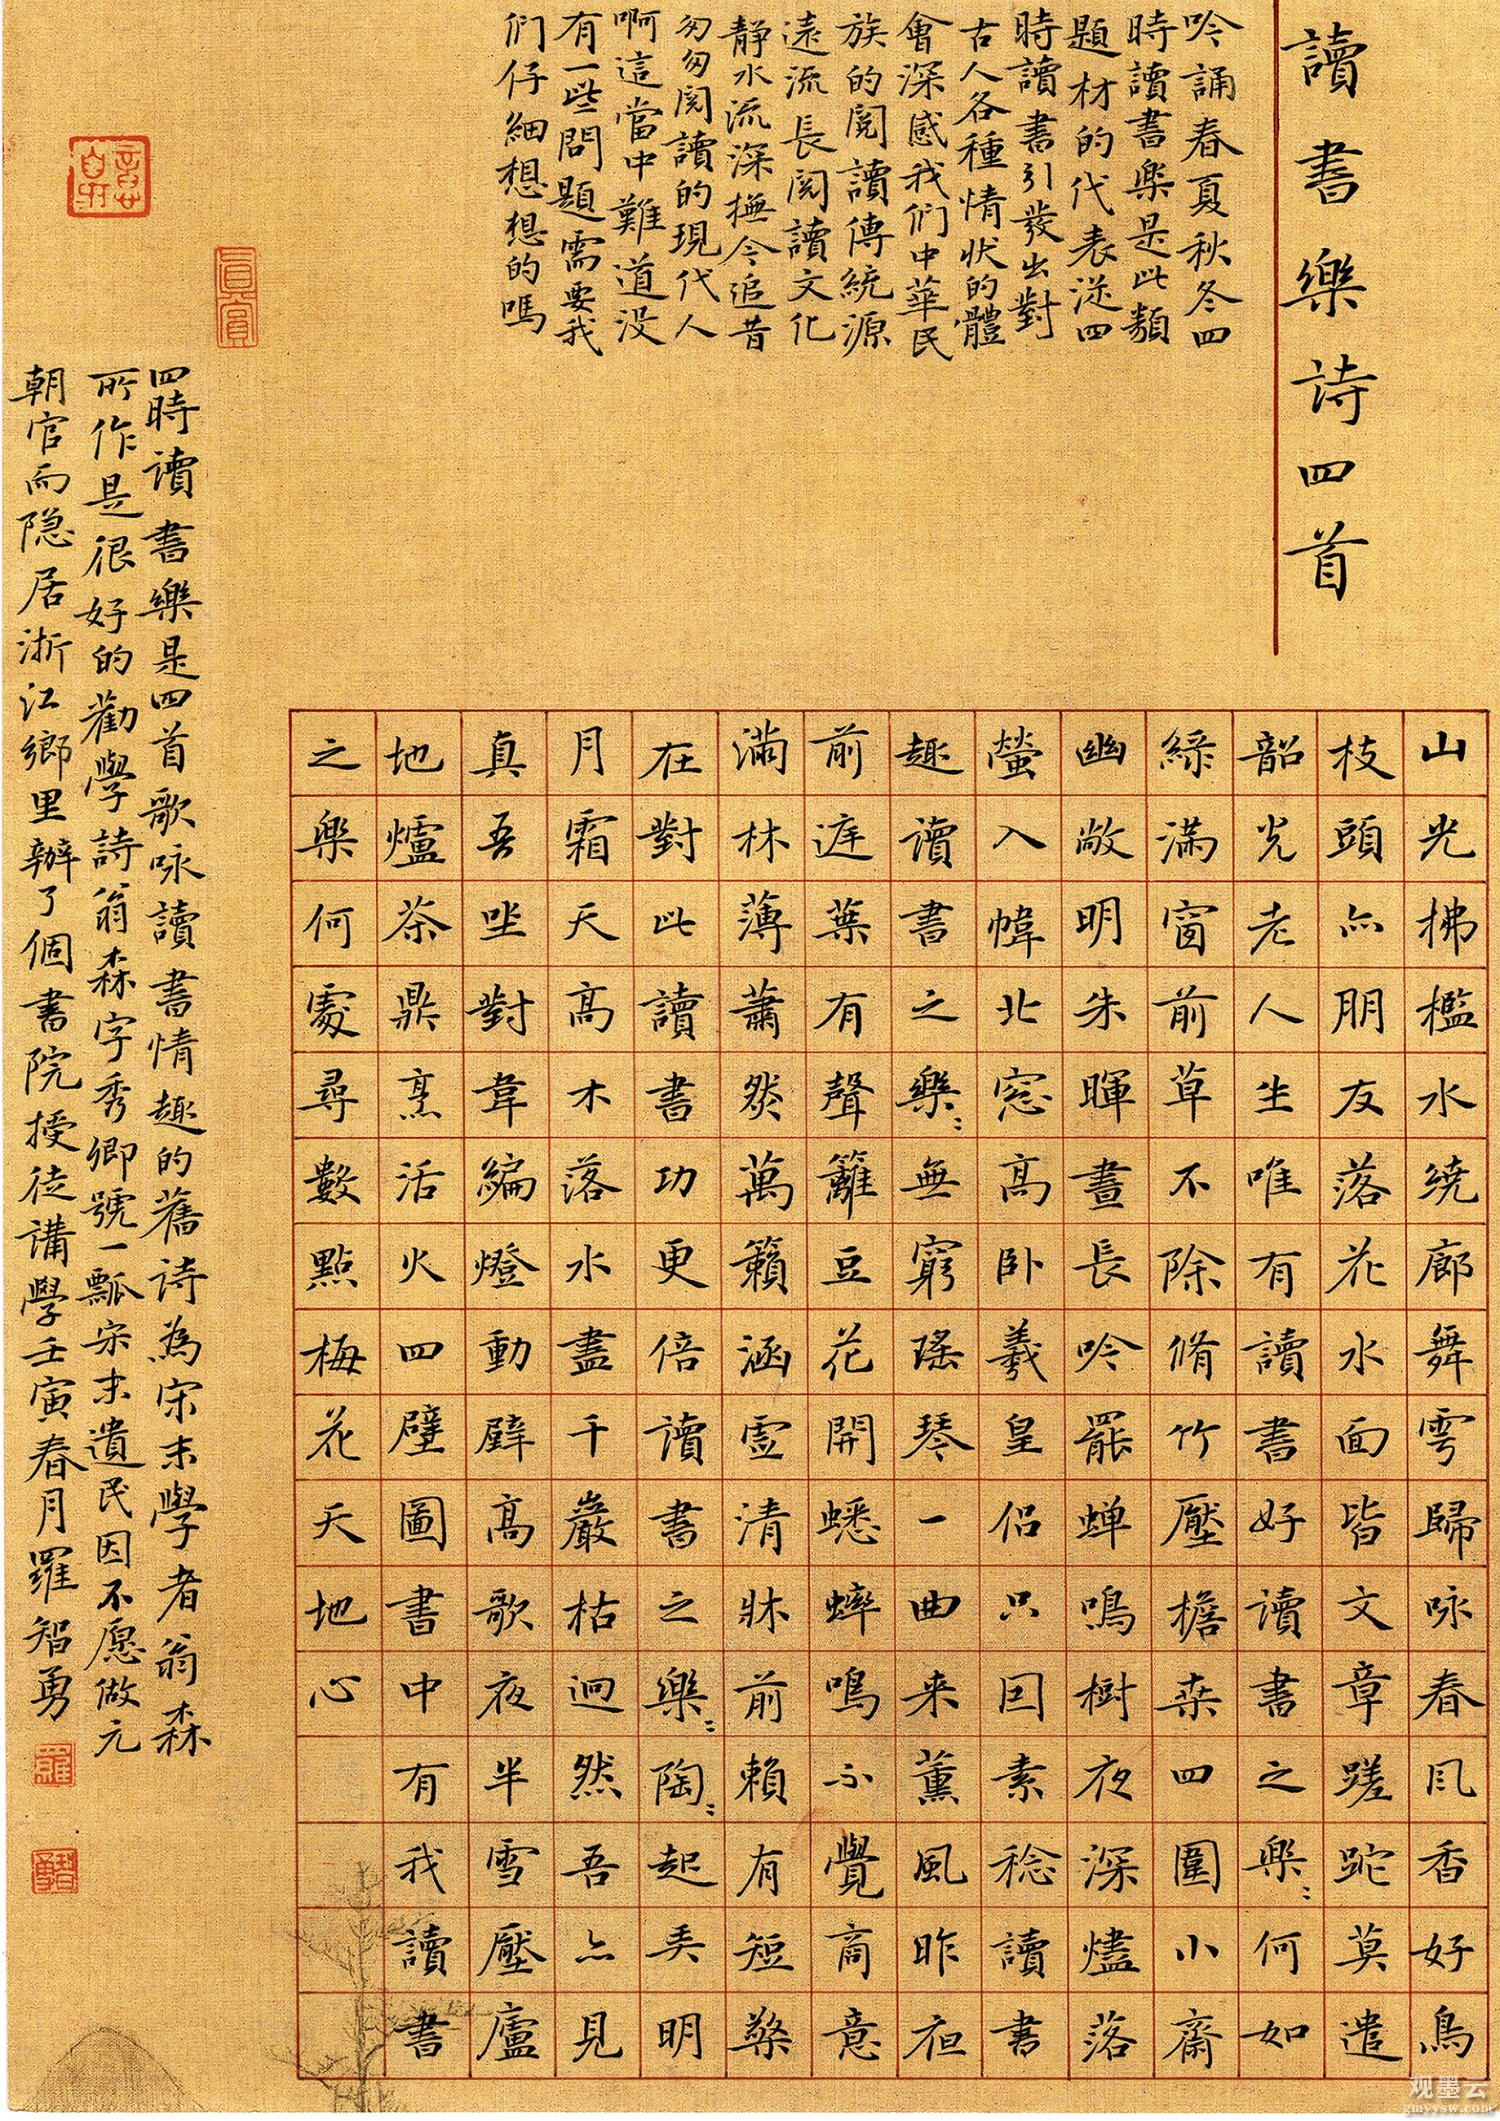 讀書樂詩四首
吟誦春夏秋冬四
時讀書樂是此類
題材的代表從四
時讀書引發出對
古人各種情狀的體
會深感我们中華民
族的閱讀傳統源
遠流長閱讀文化
靜水流深撫今追昔
匆匆閱讀的現代人
啊這當中難道没
有一些問題需要我
们仔細想想的嗎
山光拂檻水繞廊舞雩歸咏春風香好鳥
枝頭亦朋友落花水面皆文章蹉跎莫遣
韶光老人生唯有讀書好讀書之樂〻何如
綠滿窗前草不除脩竹壓檐桑四圍小齋
幽敞明朱暉晝長吟罷蝉鳴樹夜深燼落
螢入幃北窓高卧羲皇侣只因素稔讀書
趣讀書之樂〻無窮瑤琴一曲来薰風昨夜
前庭葉有聲籬豆花開蟋蟀鳴不覺商意
滿林薄蕭然萬籟涵虛清牀前賴有短檠
在對此讀書功更倍讀書之樂〻陶〻起弄明
月霜天高木落水盡千巖枯迥然吾亦見
真吾坐對韋編燈動壁高歌夜半雪壓廬
地爐茶鼎烹活火四壁圖書中有我讀書
之樂何處尋數點梅花天地心
四時讀書樂是四首歌咏讀書情趣的舊詩為宋末學者翁森
所作是很好的勸學詩翁森字秀卿號一瓢宋末遺民因不愿做元
朝官而隐居浙江鄉里辦了個書院授徒講學壬寅春月羅智勇
羅
智勇
观墨云
gmyysw.com